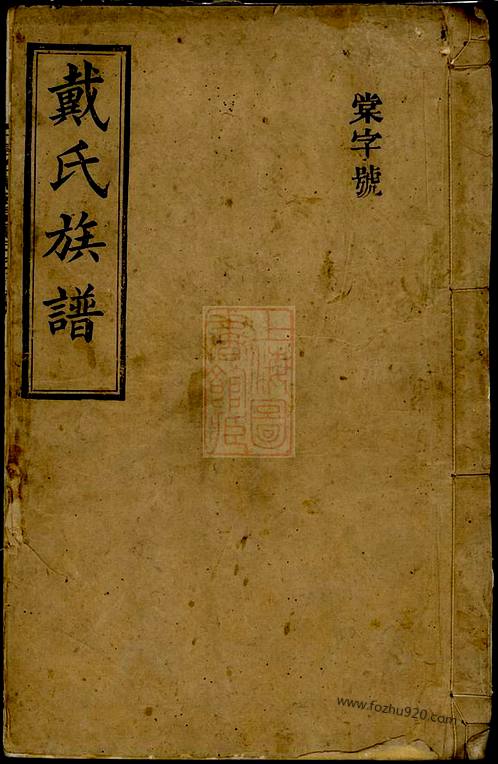 棠字號
戴氏族譜
上海圖
書館藏
www.fozhu920.com